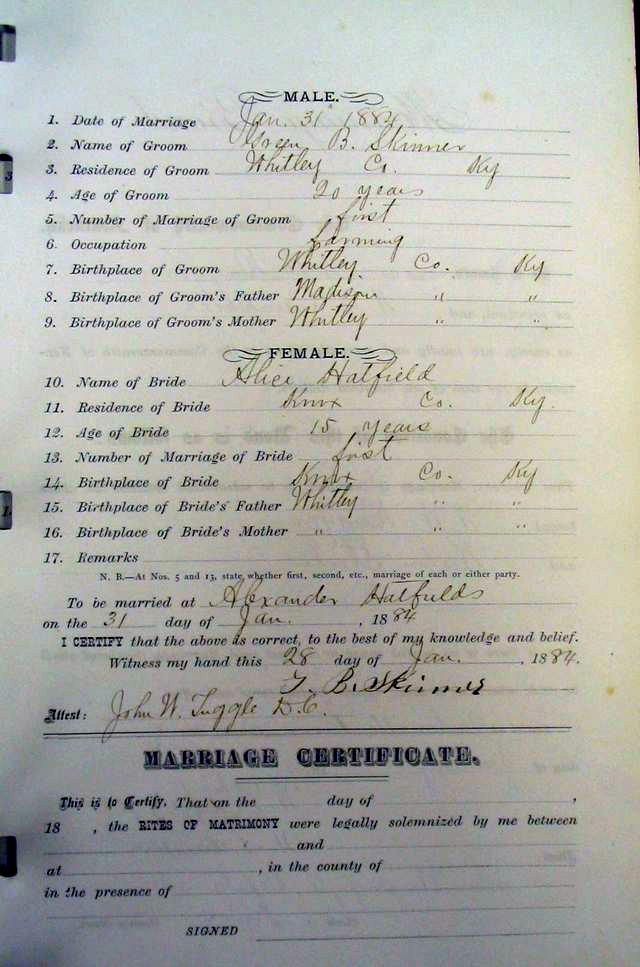 MALE.
1. Date of Marriage Jan. 31 1884
2. Name of Groom Green B. Skinner
3. Residence of Groom Whitley Co. Ky
4. Age of Groom 20 years
5. Number of Marriage of Groom first
6. Occupation Farming
7. Birthplace of Groom Whitley Co. Ky
8. Birthplace of Groom's Father Madison " "
9. Birthplace of Groom's Mother Whitley " "
FEMALE.
10. Name of Bride Alice Hatfield
11. Residence of Bride Knox Co. Ky.
12. Age of Bride 15 years
13. Number of Marriage of Bride first
14. Birthplace of Bride Knox Co. Ky
15. Birthplace of Bride's Father Whitley " "
16. Birthplace of Bride's Mother " " "
17. Remarks
N. B.—At Nos. 5 and 13, state whether first, second, etc., marriage of each or either party.
To be married at Alexander Hatfields
on the 31 day of Jan. , 1884
I CERTIFY that the above is correct, to the best of my knowledge and belief.
Witness my hand this 28 day of Jan. , 1884.
B. Skinner
Attest: John W. Tuggle D.C.
MARRIAGE CERTIFICATE.
This is to Certify, That on the day of ,
18 , the RITES OF MATRIMONY were legally solemnized by me between
and
at , in the county of
in the presence of
SIGNED